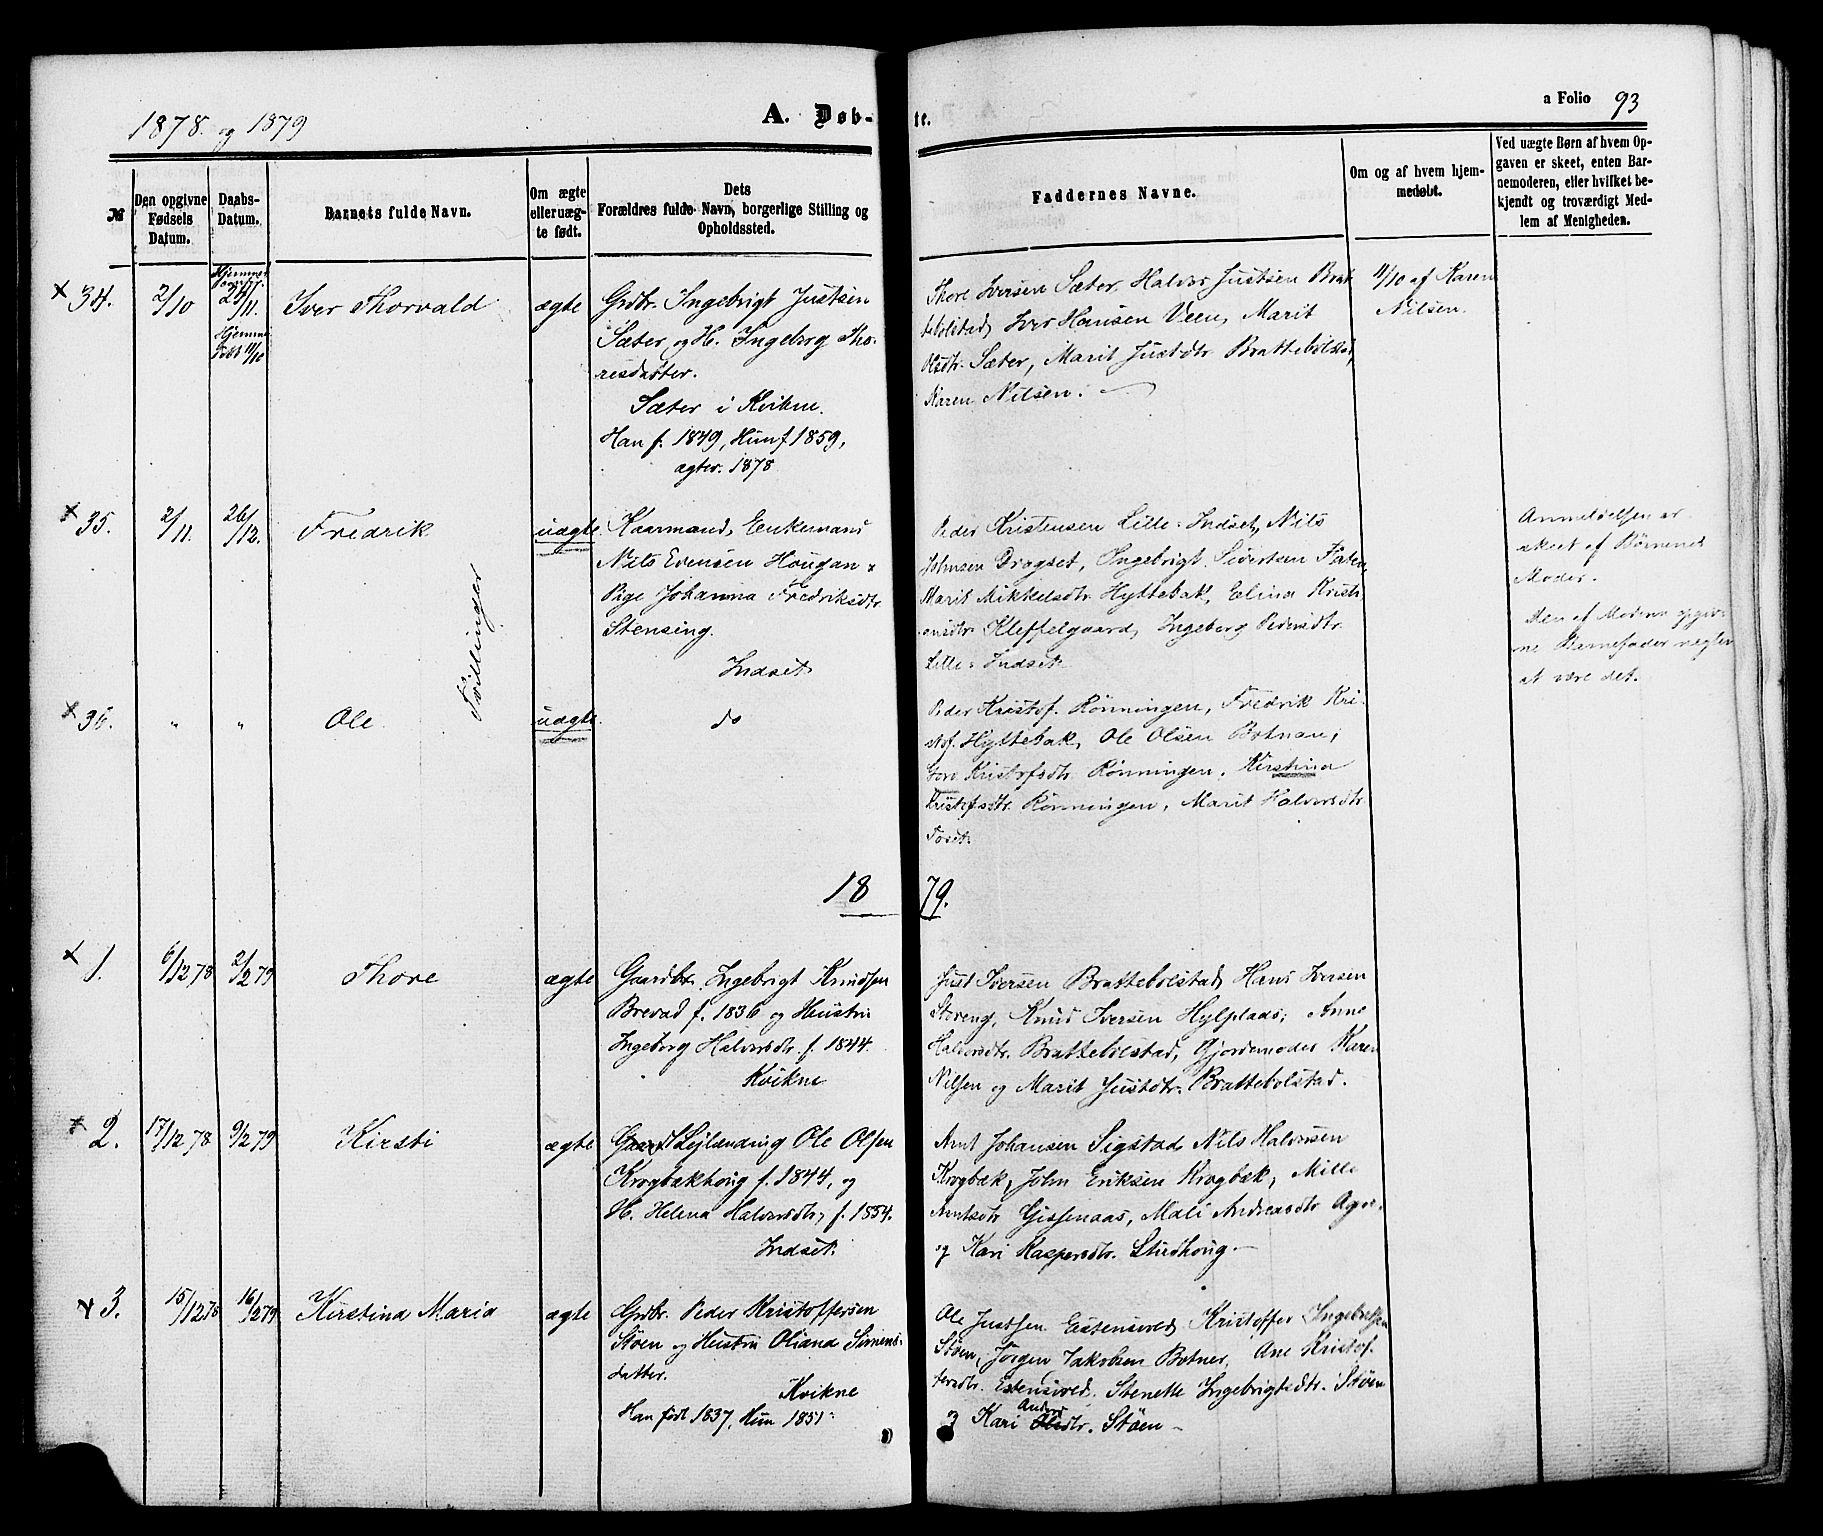 1878 og 1879
A. Døb-
te.
a Folio 93
№
Den opgivne Fødsels Datum.
Daabs-Datum.
Barnets fulde Navn.
Om ægte eller uægte født.
Dets
Forældres fulde Navn, borgerlige Stilling og
Opholdssted.
Faddernes Navne.
Om og af hvem hjem-
medøbt.
Ved uægte Børn af hvem Op-
gaven er skeet, enten Bar-
nemoderen, eller hvilket be-
kjendt og troværdigt Med-
lem af Menigheden.
34.
2/10
Hjemme
døbt 11/10
Iver Thorvald
ægte
Grdbr. Ingebrigt Justsen
Sæter og H. Ingeborg Tho-
resdatter.
Sæter i Kvikne.
Han f. 1849, Hun f 1859,
agter. 1878
Thore Iversen Sæter, Halvor Justsen Brat
tebolstad, Iver Hansen Veen, Marit
Olsdtr. Sæter, Marit Justdtr Brattebolstad,
Karen Nilsen.
11/10 af Karen
Nilsen.
35.
2/11.
26/12.
Fredrik
Tvillinger
uægte
Kaarmand, Enkemand
Nils Evensen Hougan &
Pige Johanna Fredriksdtr
Stensing.
Indset
Peder Kristensen Lille-Indset, Nils
Johnsen Dragset, Ingebrigt Sivertsen
Marit Mikkelsdtr Hyttebak, Elina Krist-
ensdtr. Kleffelgaard, Ingeborg Pedersdtr.
Lille-Indset
Anmeldelsen er
skeet af Børnenes
Moder.
Den af Moderen opgiv-
ne Barnefader negter
at være det.
35.
"
"
Ole
uægte.
do
Peder Kristof. Rønningen, Fredrik Kri-
stof. Hyttebak, Ole Olsen Botnan,
Kristofsdtr Rønningen, Kirstina
Kristofsdtr. Rønningen, Marit Halvorsdtr
Toset.
18 79.
1.
6/12 78
2/2 79
Thore
ægte
Gaardbr. Ingebrigt Knudsen
Brevad f. 1836 og Hustru
Ingeborg Halvorsdtr. f. 1844.
Kvikne
Just Iversen Brattebolstad, Hans Iversen
Støreng, Knud Iversen Hylplads, Anne
Halvorsdtr. Brattebolstad, Gjordemoder Karen
Nilsen og Marit Justdtr. Brattebolstad.
2.
17/12 78
9/2 79
Kirsti
ægte
Leilænding Ole Olsen
Krogbækhoug f. 1844, og
H. Helena Halvorsdtr, f. 1854.
Indset.
Arnt Johansen Sigstad, Nils Halvorsen
Krogbæk, John Eriksen Krogbæk, Mille
Arntsdtr Gissenaas, Mali Andreasdtr
og Kari Kaspersdtr. Stubhoug.
3.
15/12 78
16/2 79
Kirstina Maria
ægte
Grdbr. Peder Kristoffersen
Støen og Hustru Oliana Simens-
datter.
Kvikne
Han født 1837, Hun 1851.
Ole Justsen Estensved, Kristoffer Ingebrigtsen
Støen, Jørgen Jakobsen Botner, Ane Kristof-
fersdtr. Estensved, Stenette Ingebrigtsdtr. Støen
og Kari Andersdtr. Støen